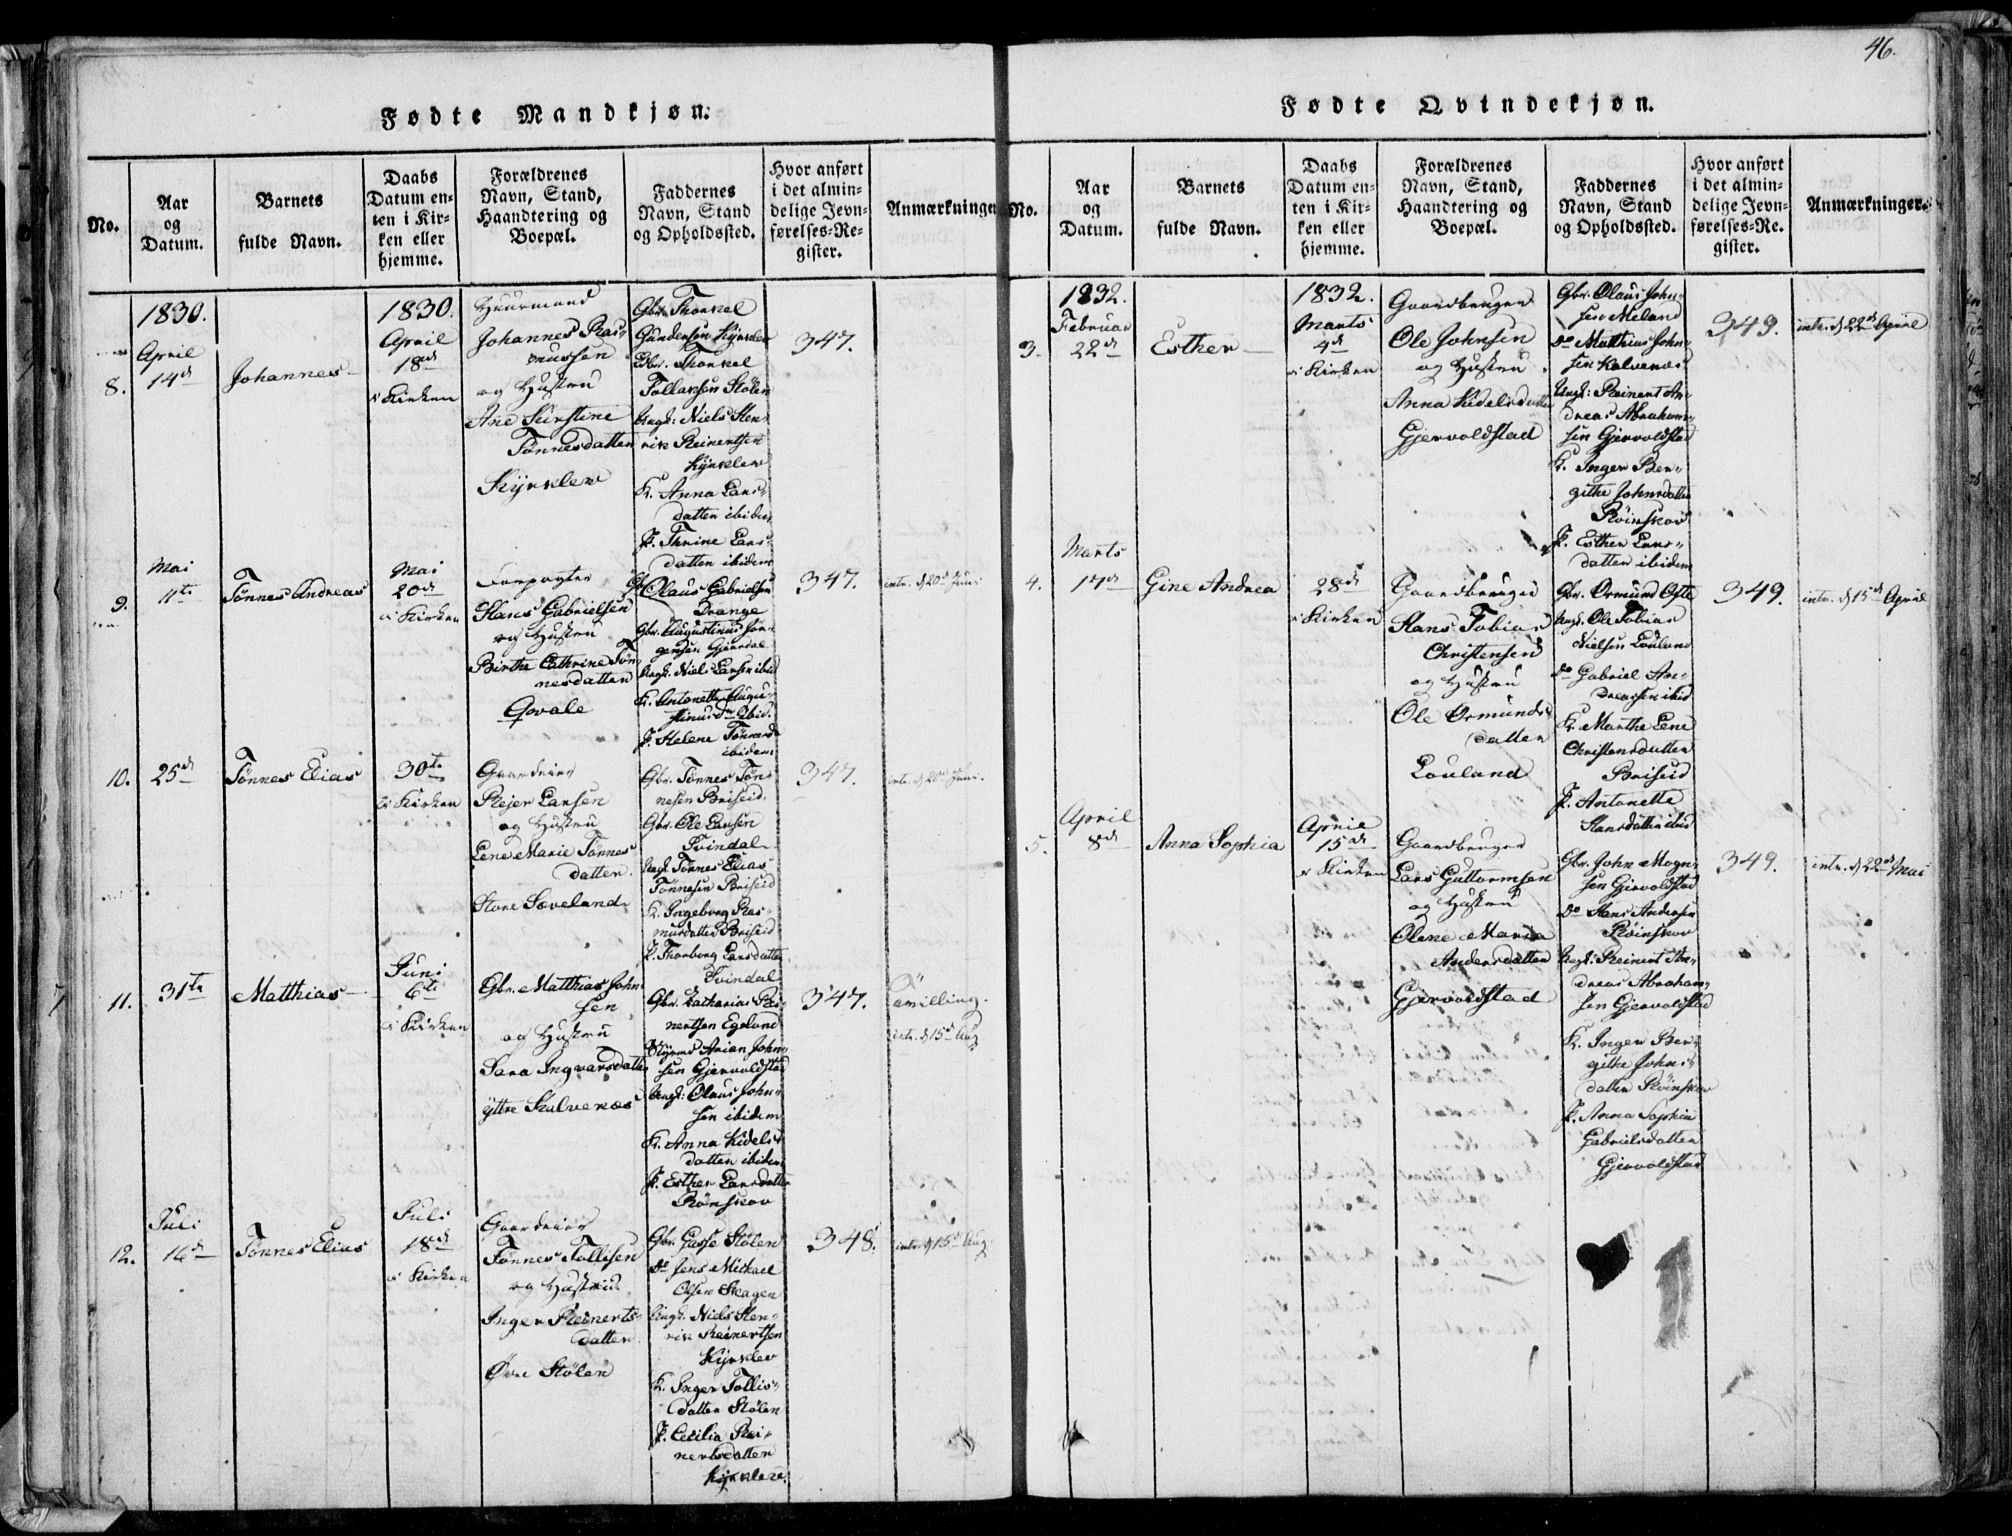 46.
Fødte Mandkjøn.
No.
Aar
og
Datum.
Barnets
fulde Navn.
Daabs
Datum en-
ten i Kir-
ken eller
hjemme.
Forældrenes
Navn, Stand,
Haandtering og
Boepæl.
Faddernes
Navn, Stand
og Opholdssted.
Hvor anført
i det almin-
delige Jevn-
førelses-Re-
gister.
Anmærkninger
1830.
April
8. 14d
Johannes
1830.
April
18d
i Kirken
Huusmand
Johannes Ras-
mussen
og Hustru
Ane Kirstine
Tønnesdatter
Kyrklev
Gbr. Thorkel
Gundersen Kyrklev
Gbr. Thorkel
Tollaksen Stølen
Ungk: Niels Hen-
rik Reinertsen
Kyrklev
K. Anna Lars-
datter ibidem
P. Thrine Lars-
datter ibidem
347.
Mai
9. 11te
Tønnes Andreas
Mai
20d
i Kirken
Forpagter
Hans Gabrielsen
og Hustru
Birthe Cathrine Tøn-
nesdatter
Qvale
Gbr. Claus Gabrielsen
Drange
Gbr. Augustinus Jør-
gensen Gjerdal
Ungk. Niels Larsen ibid
K. Antonette Augu-
stinusd. ibid.
P. Helene Tønnesd
ibidem
347.
intr. d 20d Juni
10. 25d
Tønnes Elias
30te
i Kirken
Gaardeier
Rejer Larsen
og Hustru
Lene Marie Tønnes-
datter
Store Sæveland
Gbr. Tønnes Tøn-
nesen Briseid
Gbr. Ole Larsen
Svindal
Ungk. Tønnes Elias
Tønnesen Briseid
K. Ingeborg Ras-
musdatter Briseid
P. Thorborg Larsdatter
Svindal
347.
intr. d 20d Juni.
11. 31te
Matthias
Juni
6te
i Kirken
Gbr. Matthias John-
sen
og Hustru
Sara Ingvarsdatter
yttre Kalvenæs
Gbr. Zacharias Rei-
nertsen Egeland
Styrmd Arian John-
sen Gjervoldstad
Ungk: Olaus John-
sen ibidem
K. Anna Kidels-
datter ibidem
P. Esther Larsdatter
Rønskov
347.
Tvilling.
intr. d 15d Aug
Juli
12. 16d
Tønnes Elias
Juli
18d
i Kirken
Gaardeier
Tønnes Tollisen
og Hustrue
Inger Reinerts-
datter
Øvre Stølen
Gbr. Gasse Stølen
Do Jens Mickael
Olsen Skagen
Ungk. Niels Hen-
rik Reinertsen
Kyrklev
K. Inger Tollis-
datter Stølen
P. Cecilia Rei-
nertsdatter
Kyrklev
348.
intr. d 15d Aug.
Fødte Qvindekjøn.
No.
Aar
og
Datum.
Barnets
fulde Navn.
Daabs
Datum en-
ten i Kir-
ken eller
hjemme.
Forældrenes
Navn, Stand,
Haandtering og
Boepæl.
Faddernes
Navn, Stand
og Opholdssted.
Hvor anført
i det almin-
delige Jevn-
førelses-Re-
gister.
Anmærkninger.
1832.
Februar
3. 22d
Esther
1832.
Marts
4d
i Kirken
Gaardbruger
Ole Johnsen
og Hustru
Anna Kidelsdatter
Gjervoldstad
Gbr. Olaus John-
sen Meland
Do Matthias John-
sen Kalvenæs
Ungk: Reinert An-
dreas Abraham-
sen Gjervoldstad
K. Inger Ber-
githe Johnsdatter
Røinskov
P. Esther Lars-
datter ibidem
349.
intr. d 22d April
Marts
4. 17d
Gine Andrea
28d
i Kirken
Gaardbruger
Hans Tobias
Christensen
og Hustru
Ole Ormunds-
datter
Louland
Gbr. Ormund Ofte
Ungk. Ole Tobias
Nielsen Louland
Do Gabriel An-
dreassen ibid
K. Marthe Lene
Christensdatter
Briseid
P. Antonette
Hansdatter ibid
349.
intr. d 15d April
April
5. 8d
Anna Sophia
April
15d
i Kirken
Gaardbruger
Lars Guttormsen
og Hustru
Olene Maria
Andersdatter
Gjervoldstad
Gbr. John Mogn-
sen Gjervoldstad
Do Hans Andersen
Røinskov
Ungk: Reinert An-
dreas Abraham-
sen Gjervoldstad
K. Inger Ber-
githe Johns-
datter Røinskov
P. Anna Sophia
Gabrielsdatter
Gjervoldstad
349.
intr. d 22d Mai